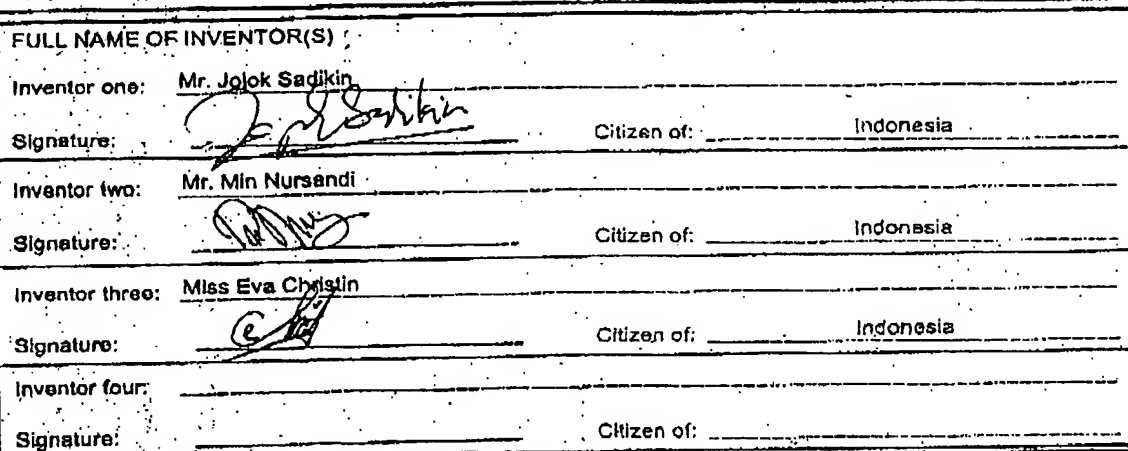 FULL NAME OF INVENTOR(S)
Inventor one: Mr. Jojok Sadikin
Sadikin
Signature: Citizen of: Indonesia
Inventor two: Mr. Min Nursandi
Signature: Citizen of: Indonesia
Inventor three: Miss Eva Christin
Signature: Citizen of: Indonesia
Inventor four:
Signature: Citizen of: